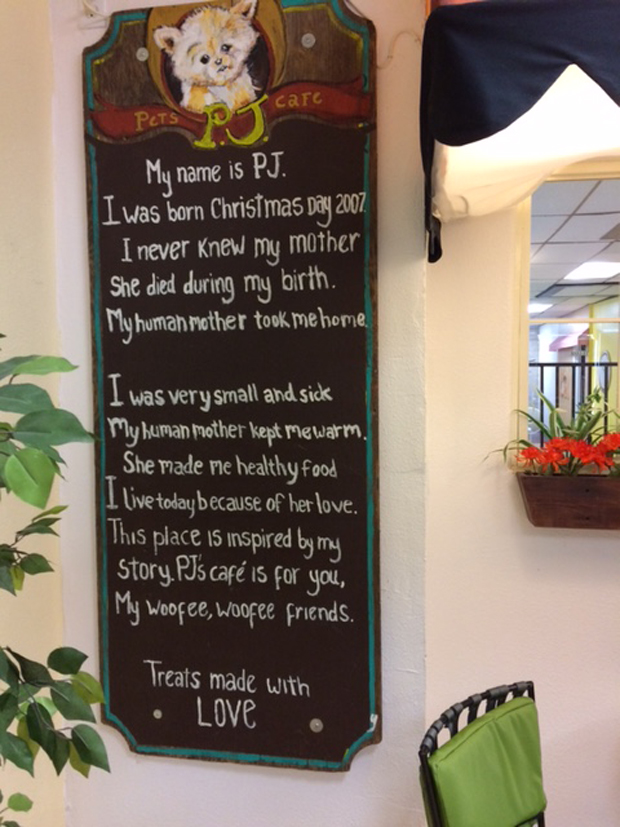 Pets PJ cafe
My name is PJ.
I was born Christmas Day 2007.
I never knew my mother
She died during my birth.
My human mother took me home.
I was very small and sick
My human mother kept me warm.
She made me healthy food
I live today because of her love.
This place is inspired by my
story. PJ's café is for you,
My woofee, woofee friends.
Treats made with
LOVE